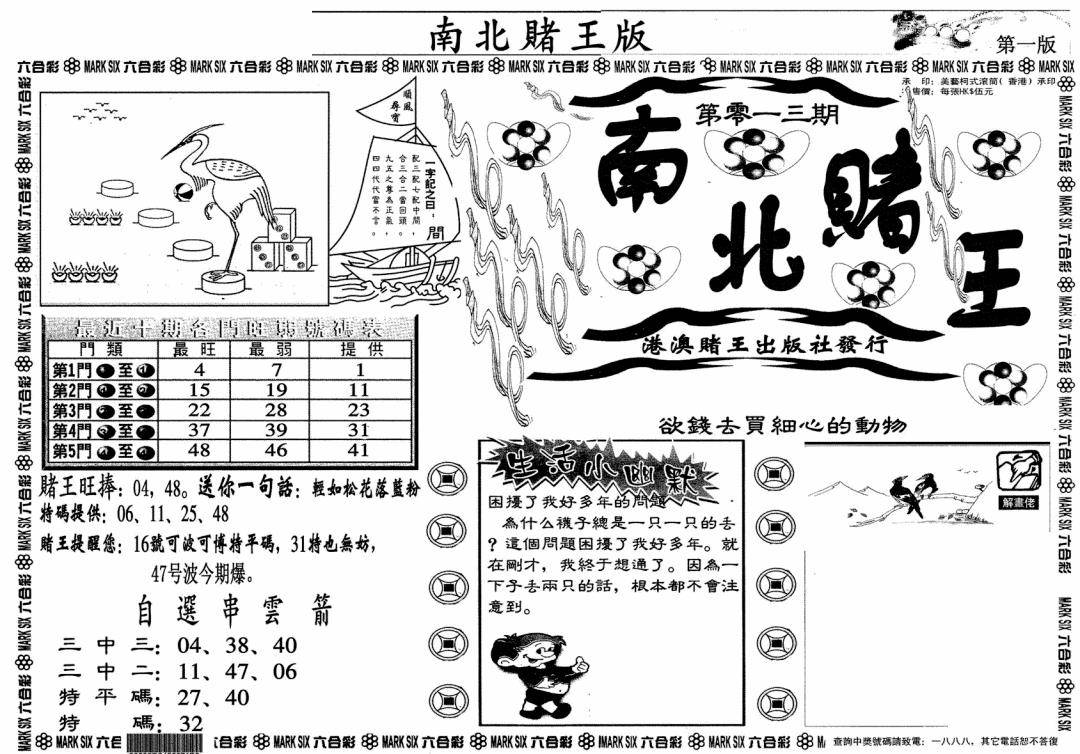 南北賭王版
第一版
六合彩 MARK SIX 六合彩 MARK SIX 六合彩 MARK SIX 六合彩 MARK SIX 六合彩 MARK SIX 六合彩 MARK SIX 六合彩 MARK SIX 六合彩 MARK SIX 六合彩 MARK SIX 六合彩 MARK SIX
承 印：美藝柯式滚筒（香港）承印
售價：每張HK$伍元
順風
尋寶
一字記之曰：間
配三配七配中間，
合三合二當回頭。
九五之尊為正氣，
四四代代當不言。
第零一三期
南北賭王
港澳賭王出版社發行
最近十期各門旺弱號碼表
門類 最旺 最弱 提供
第1門 至 4 7 1
第2門 至 15 19 11
第3門 至 22 28 23
第4門 至 37 39 31
第5門 至 48 46 41
賭王旺捧：04，48。送你一句話：輕如松花落藍粉
特碼提供：06、11、25、48
賭王提醒您：16號可波可博特平碼，31特也無妨，
47号波今期爆。
自選串雲箭
三中三：04、38、40
三中二：11、47、06
特平碼：27、40
特碼：32
欲錢去買細心的動物
生活小幽默
困擾了我好多年的問題
為什么襪子總是一只一只的丟
？這個問題困擾了我好多年。就
在剛才，我終于想通了。因為一
下子丟兩只的話，根本都不會注
意到。
解畫佬
MARK SIX 六合彩 MARK SIX 六合彩 MARK SIX 六合彩 MARK SIX 六合彩 MARK SIX 六合彩 MARK SIX 六合彩 MARK SIX 六合彩
查詢中獎號碼請致電：一八八八，其它電話恕不答復